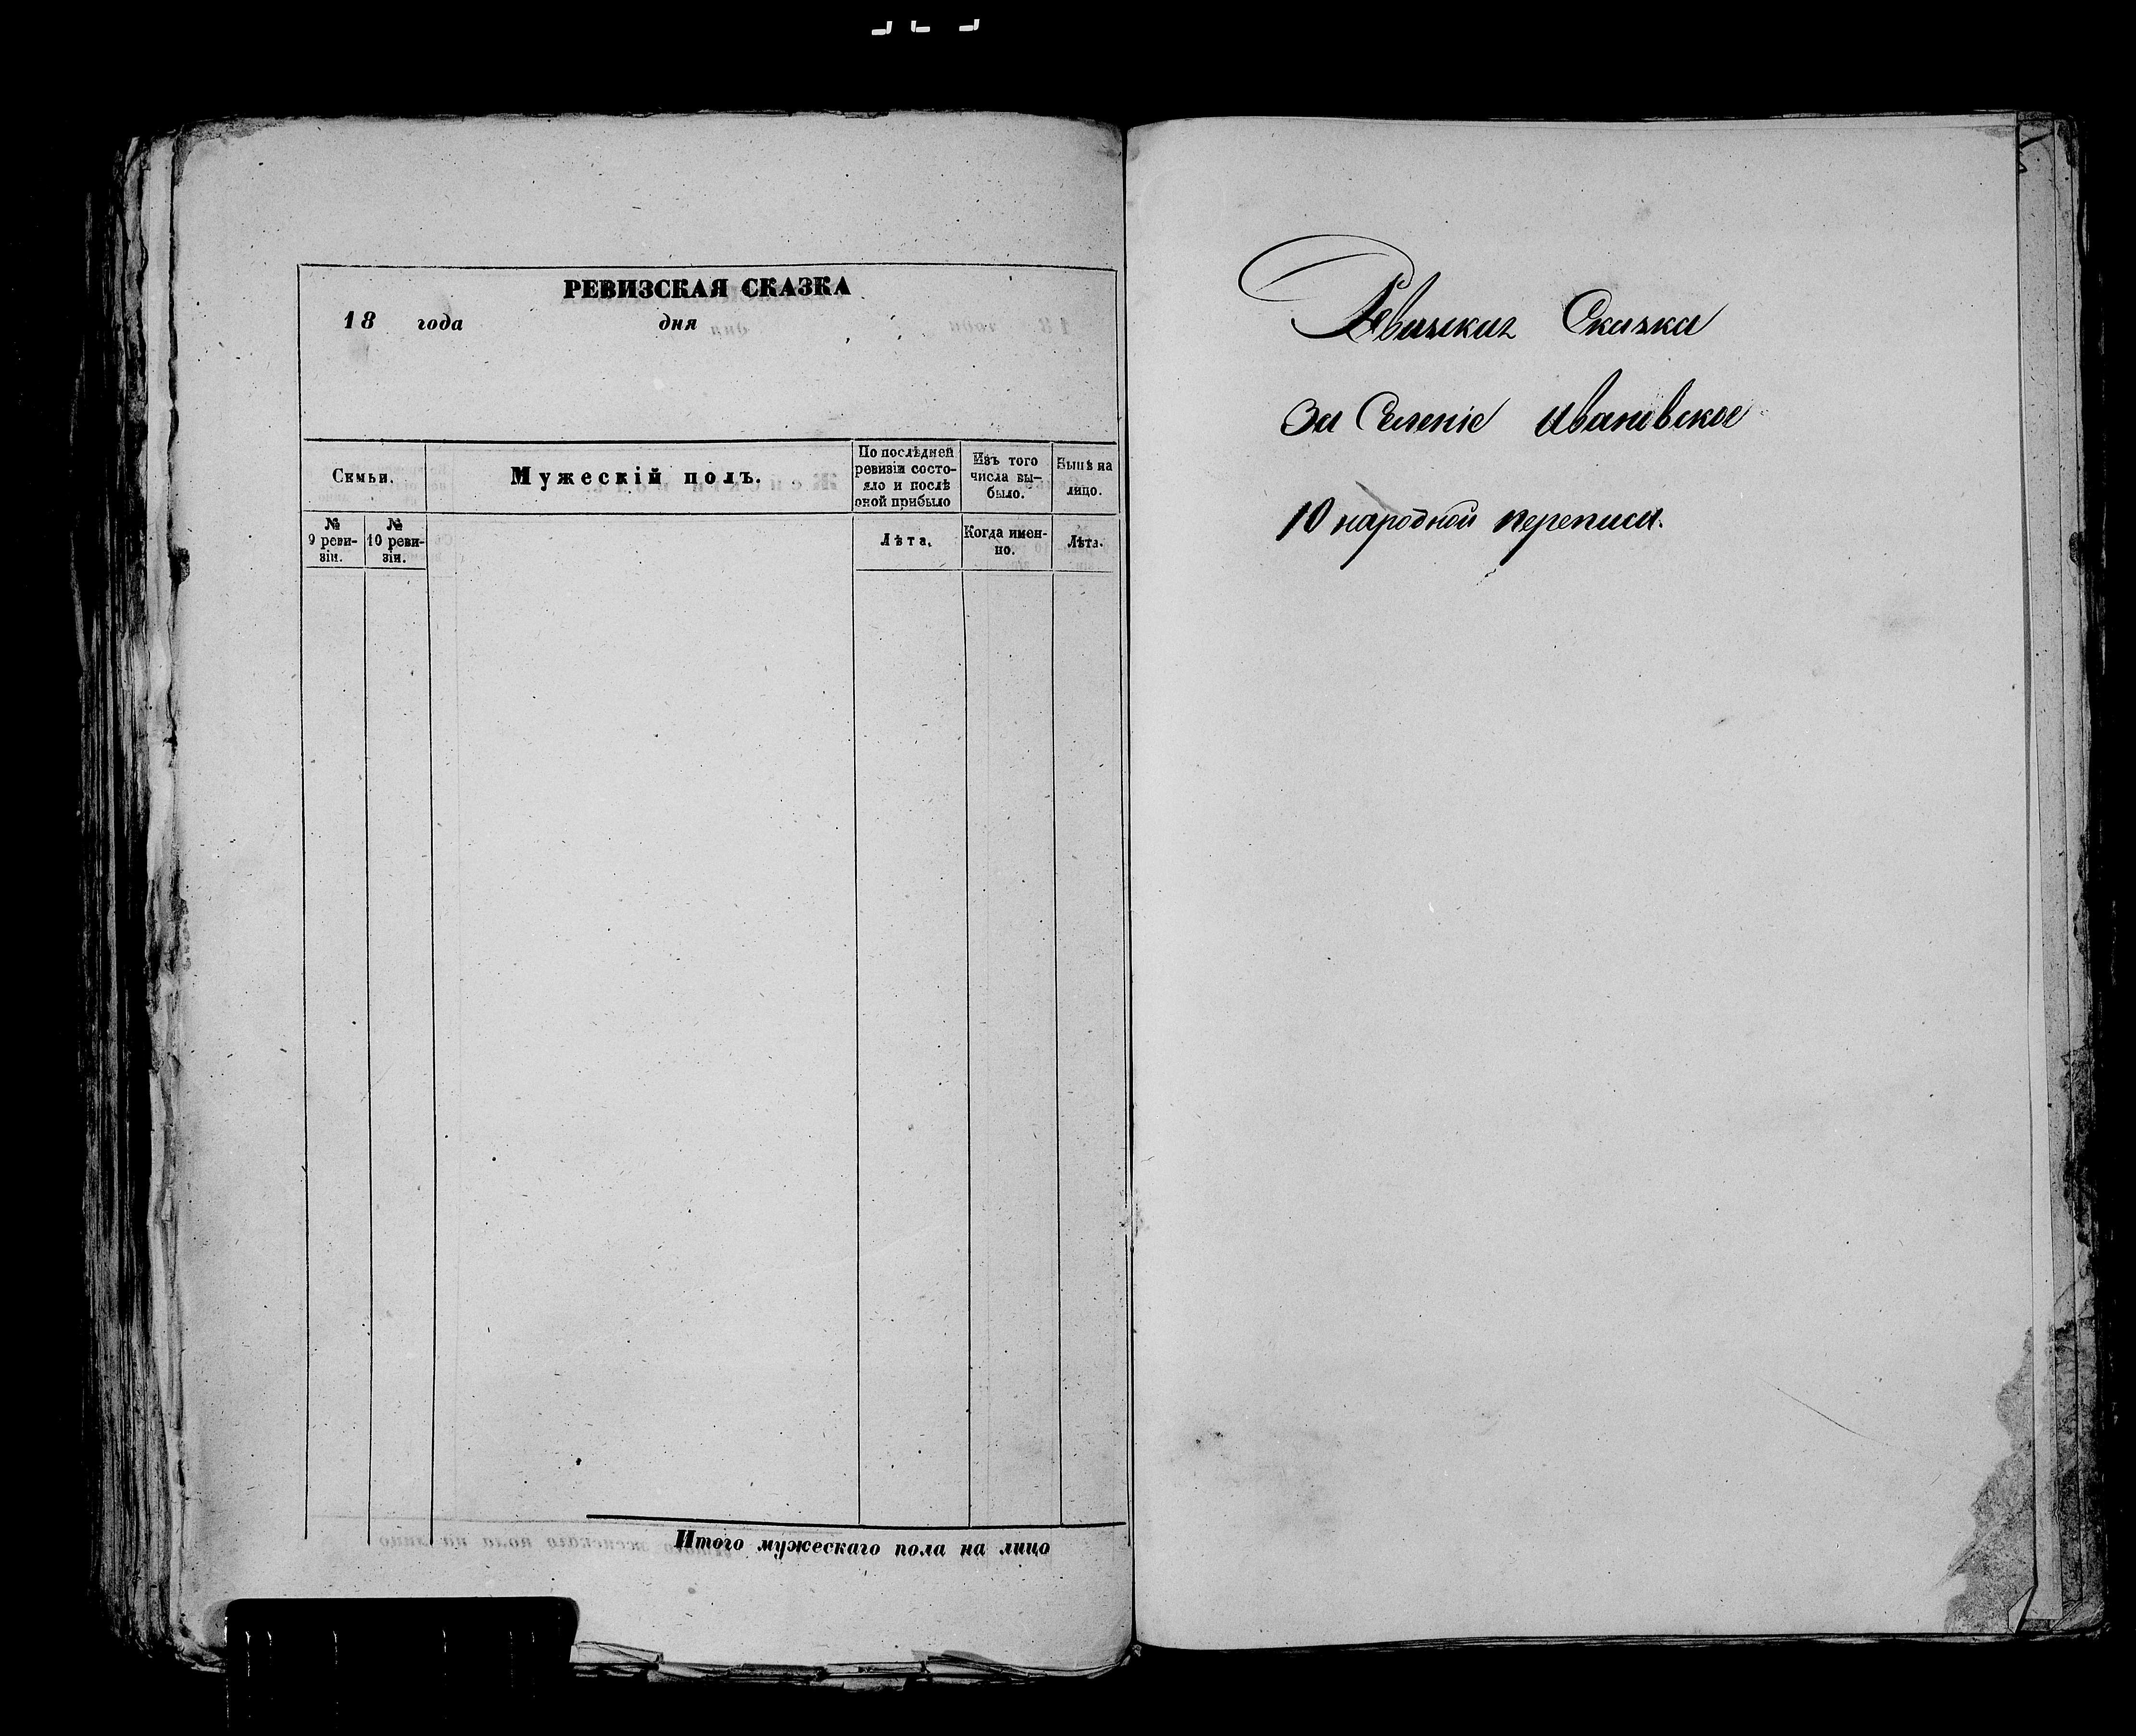 РЕВИЗСКАЯ СКАЗКА
18 года дня
Семьи.
Мужескій полъ.
По послѣдней
ревизіи состо-
яло и послѣ
оной прибыло
Изъ того
числа вы-
было.
Нынѣ на
лицо.
№
9 реви-
зіи.
№
10 реви-
зіи.
Лѣта.
Когда имен-
но.
Лѣта.
Итого мужескаго пола на лицо
Ревизская Сказка
За Селеніе Ивановское
10 народной переписи.